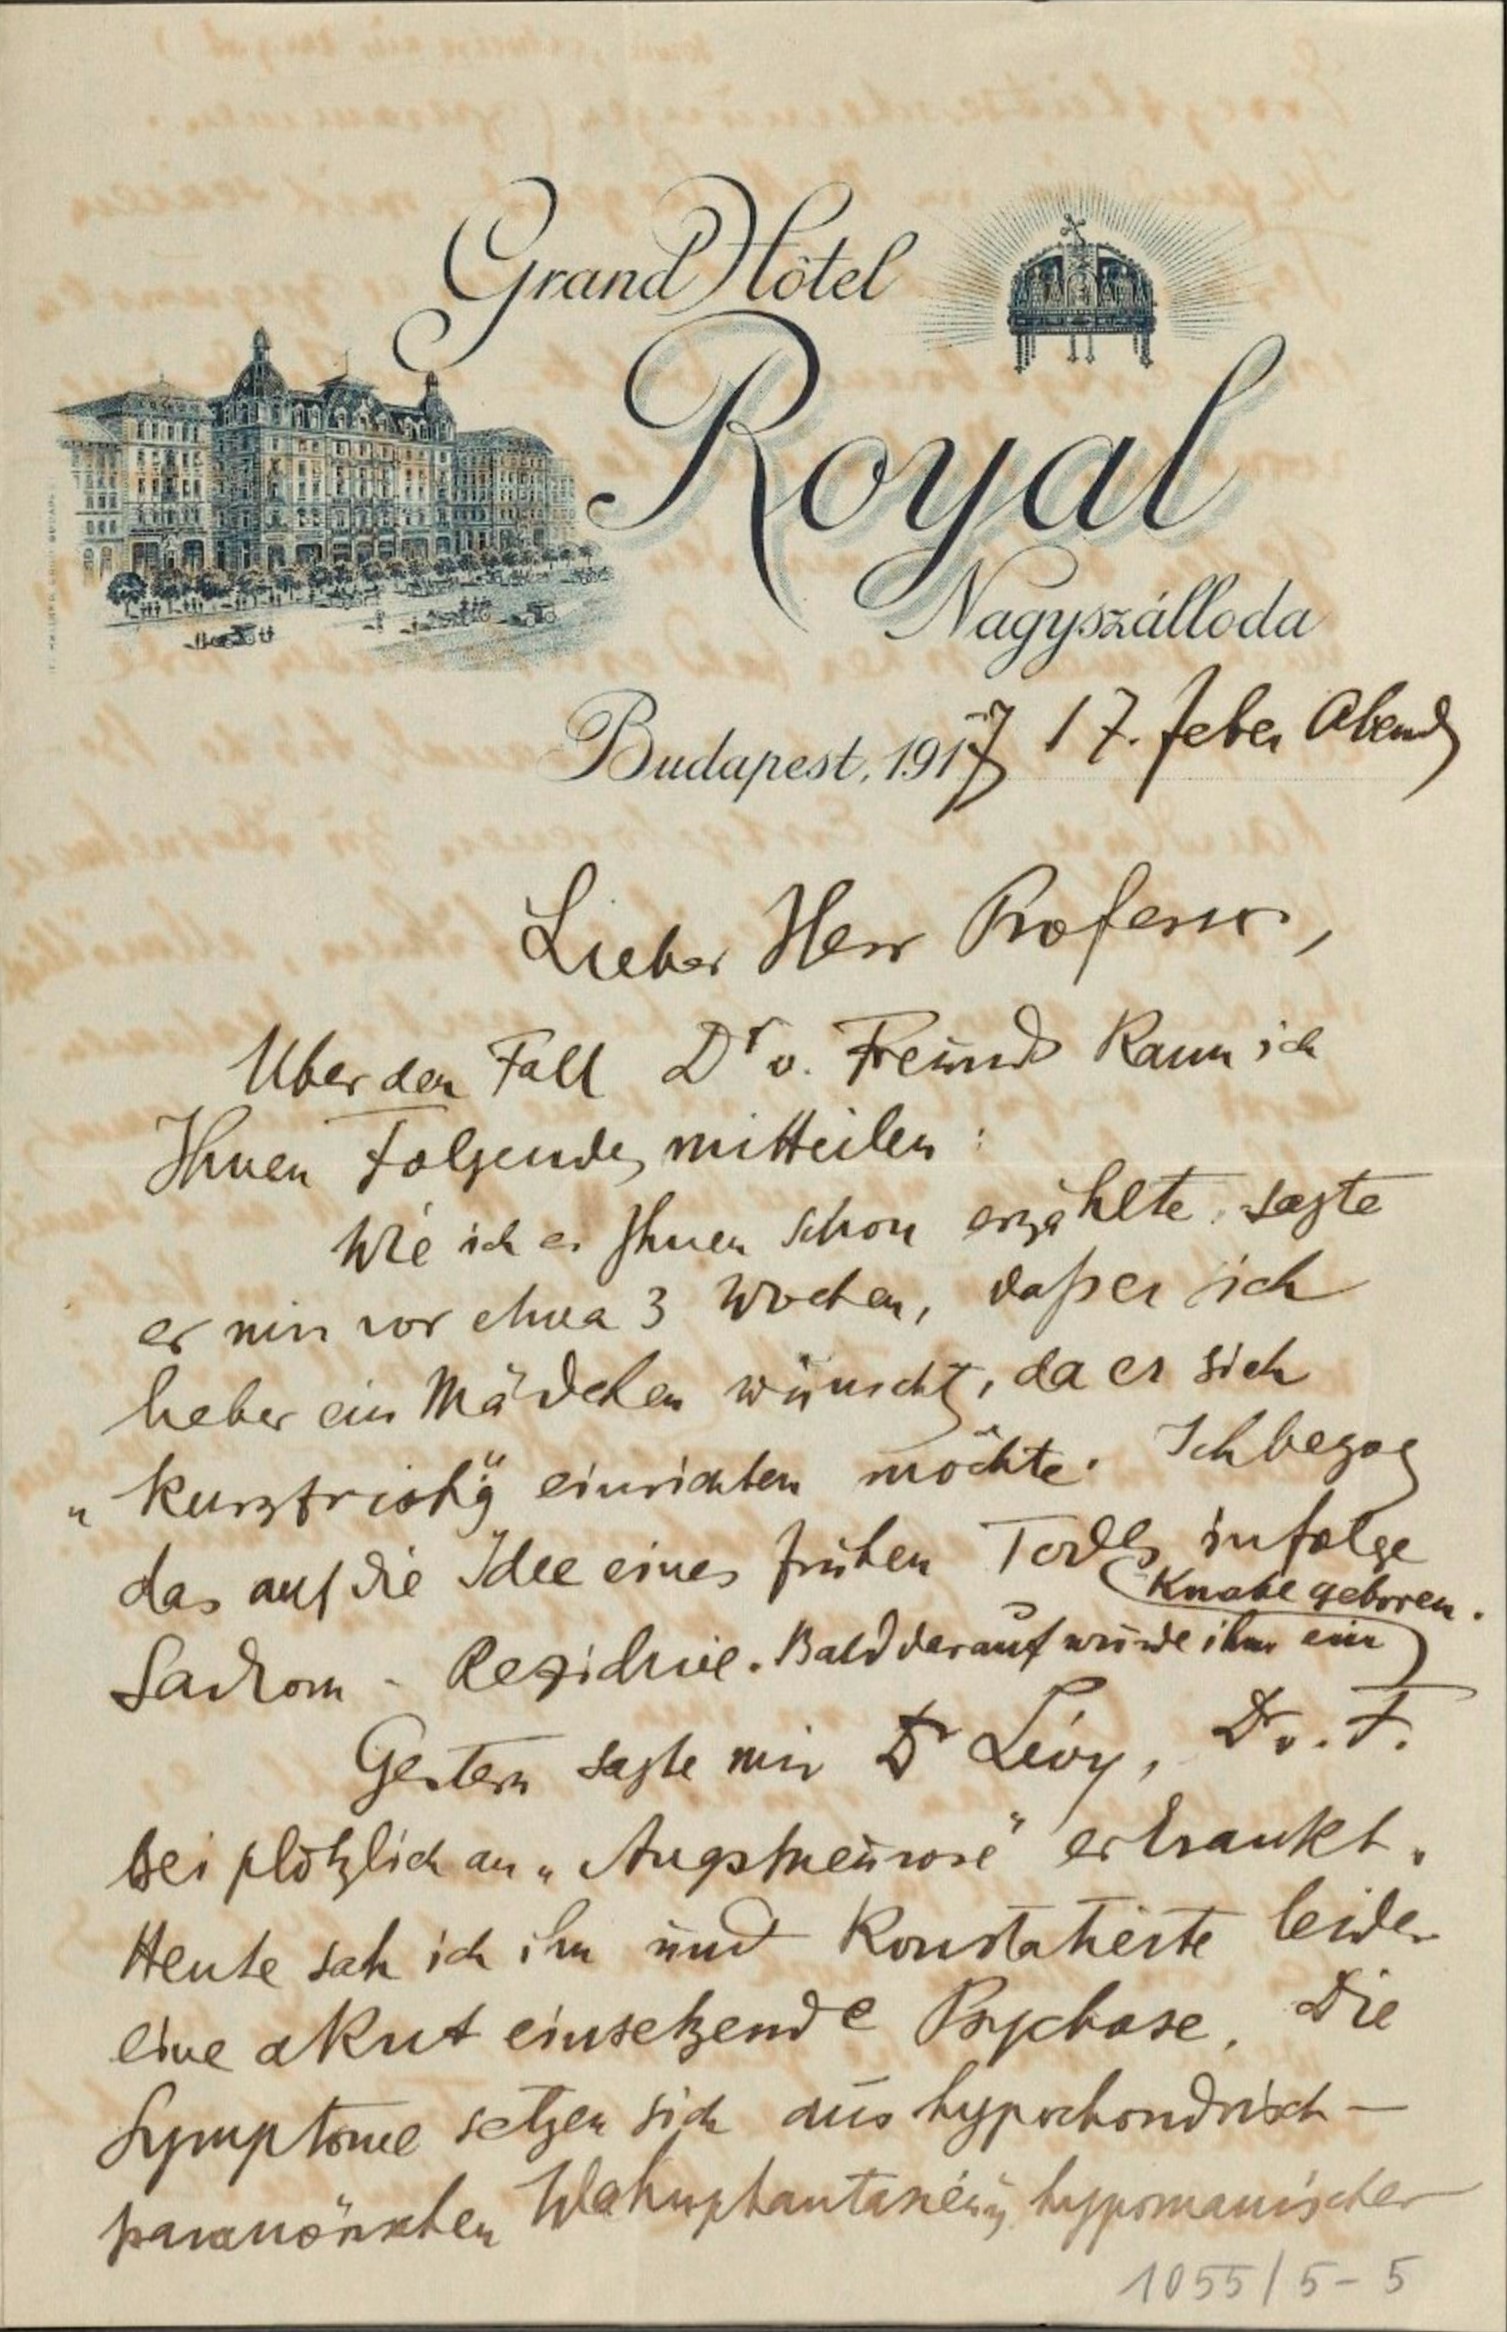 Grand Hôtel
Royal
Nagyszálloda
Budapest, 1917 17. Feber Abends
Lieber Herr Professor,
Über den Fall Dr v. Freund kann ich
Ihnen Folgendes mitteilen:
Wie ich es Ihnen schon erzählte, sagte
er mir vor etwa 3 Wochen, daß er sich
lieber ein Mädchen wünscht, da er sich
„kurzfristig“ einrichten möchte. Ich bezog
das auf die Idee eines frühen Todes infolge
Sarkom-Rezidive. Bald darauf wurde ihm ein
Knabe geboren.
Gestern sagte mir Dr Lévy, Dr v. F.
sei plötzlich an „Angstneurose“ erkrankt.
Heute sah ich ihn und konstatierte leider
eine akut einsetzende Psychose. Die
Symptome setzen sich aus hypochondrisch-
paranoischen Wahnphantasien, hypomanischer
1055/5-5